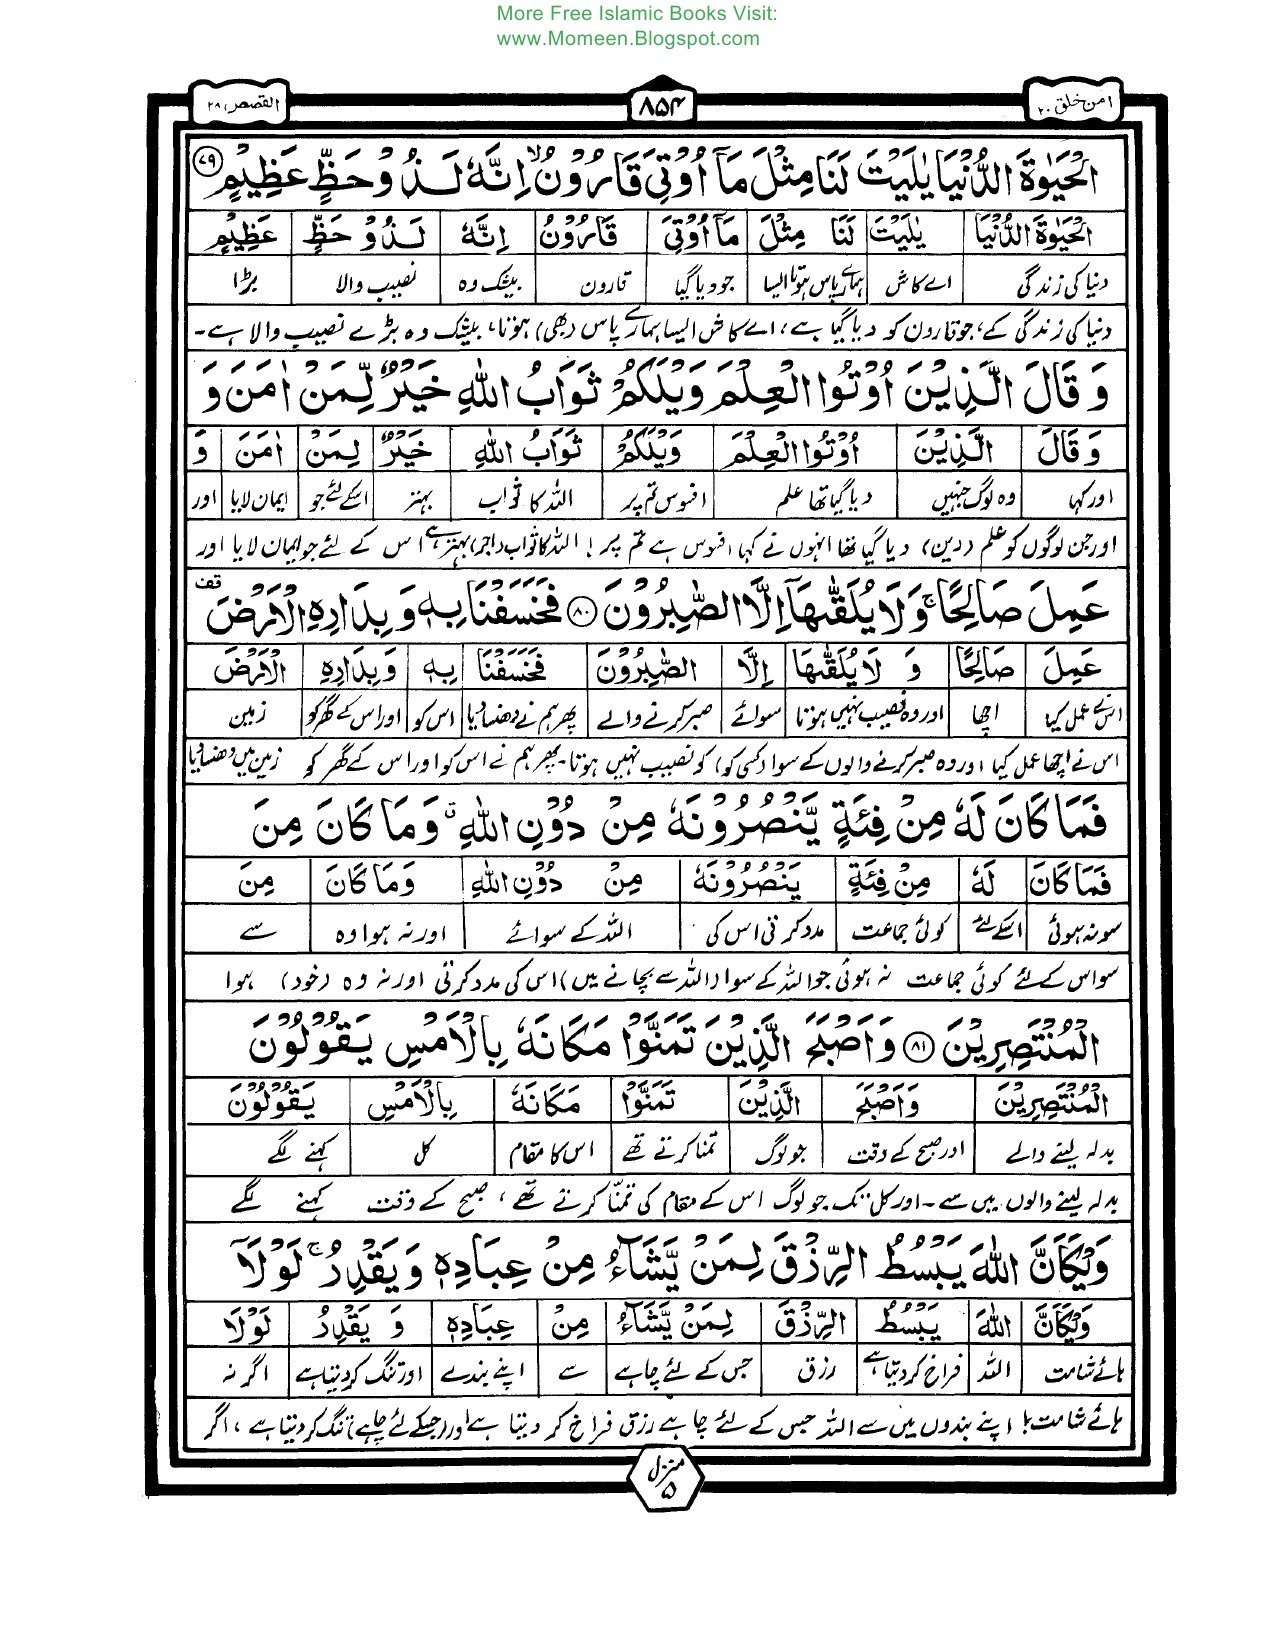 More Free Islamic Books Visit:
www.Momeen.Blogspot.com
امن خلق ۲۰ ۸۵۴ القصص ۲۸
الْحَيٰوةَ الدُّنْيَا يٰلَيْتَ لَنَا مِثْلَ مَآ اُوْتِيَ قَارُوْنُ ۙ اِنَّهٗ لَذُوْ حَظٍّ عَظِيْمٍ ﴿۷۹﴾
الْحَيٰوةَ الدُّنْيَا يٰلَيْتَ لَنَا مِثْلَ مَآ اُوْتِيَ قَارُوْنُ اِنَّهٗ لَذُوْ حَظٍّ عَظِيْمٍ
دنیا کی زندگی اے کاش ہمارے پاس ہوتا ایسا جو دیا گیا قارون بیشک وہ نصیب والا بڑا
دنیا کی زندگی کے، جو قارون کو دیا گیا ہے، اے کاش ایسا ہمارے پاس (بھی) ہوتا، بیشک وہ بڑے نصیب والا ہے۔
وَ قَالَ الَّذِيْنَ اُوْتُوا الْعِلْمَ وَيْلَكُمْ ثَوَابُ اللّٰهِ خَيْرٌ لِّمَنْ اٰمَنَ وَ
وَ قَالَ الَّذِيْنَ اُوْتُوا الْعِلْمَ وَيْلَكُمْ ثَوَابُ اللّٰهِ خَيْرٌ لِمَنْ اٰمَنَ وَ
اور کہا وہ لوگ جنہیں دیا گیا تھا علم افسوس تم پر اللہ کا ثواب بہتر اسکے لئے جو ایمان لایا اور
اور جن لوگوں کو علم (دین) دیا گیا تھا انہوں نے کہا افسوس ہے تم پر! اللہ کا ثواب (اجر) بہتر ہے اس کے لئے جو ایمان لایا اور
عَمِلَ صَالِحًا ۚ وَلَا يُلَقّٰىهَآ اِلَّا الصّٰبِرُوْنَ ﴿۸۰﴾ فَخَسَفْنَا بِهٖ وَ بِدَارِهِ الْاَرْضَ قف
عَمِلَ صَالِحًا وَ لَا يُلَقّٰىهَا اِلَّا الصّٰبِرُوْنَ فَخَسَفْنَا بِهٖ وَبِدَارِهِ الْاَرْضَ
اس نے عمل کیا اچھا اور وہ نصیب نہیں ہوتا سوائے صبر کرنے والے پھر ہم نے دھنسا دیا اس کو اور اس کے گھر کو زمین
اس نے اچھا عمل کیا اور وہ صبر کرنے والوں کے سوا (کسی کو) کو نصیب نہیں ہوتا۔ پھر ہم نے اس کو اور اس کے گھر کو زمین میں دھنسا دیا
فَمَا كَانَ لَهٗ مِنْ فِئَةٍ يَّنْصُرُوْنَهٗ مِنْ دُوْنِ اللّٰهِ ۗ وَمَا كَانَ مِنَ
فَمَا كَانَ لَهٗ مِنْ فِئَةٍ يَنْصُرُوْنَهٗ مِنْ دُوْنِ اللّٰهِ وَمَا كَانَ مِنَ
سو نہ ہوئی اسکے لئے کوئی جماعت مدد کرتی اس کی اللہ کے سوائے اور نہ ہوا وہ سے
سو اس کے لئے کوئی جماعت نہ ہوئی جو اللہ کے سوا (اللہ سے بچانے میں) اس کی مدد کرتی اور نہ وہ (خود) ہوا
الْمُنْتَصِرِيْنَ ﴿۸۱﴾ وَاَصْبَحَ الَّذِيْنَ تَمَنَّوْا مَكَانَهٗ بِالْاَمْسِ يَقُوْلُوْنَ
الْمُنْتَصِرِيْنَ وَاَصْبَحَ الَّذِيْنَ تَمَنَّوْا مَكَانَهٗ بِالْاَمْسِ يَقُوْلُوْنَ
بدلہ لینے والے اور صبح کے وقت جو لوگ تمنا کرتے تھے اس کا مقام کل کہنے لگے
بدلہ لینے والوں میں سے۔ اور کل تک جو لوگ اس کے مقام کی تمنّا کرتے تھے، صبح کے وقت کہنے لگے
وَيْكَاَنَّ اللّٰهَ يَبْسُطُ الرِّزْقَ لِمَنْ يَّشَآءُ مِنْ عِبَادِهٖ وَيَقْدِرُ ۚ لَوْلَآ
وَيْكَاَنَّ اللّٰهَ يَبْسُطُ الرِّزْقَ لِمَنْ يَّشَآءُ مِنْ عِبَادِهٖ وَ يَقْدِرُ لَوْلَا
ہائے شامت اللہ فراخ کر دیتا ہے رزق جس کے لئے چاہے سے اپنے بندے اور تنگ کر دیتا ہے اگر نہ
ہائے شامت! اپنے بندوں میں سے اللہ جس کے لئے چاہے رزق فراخ کر دیتا ہے اور (جسکے لئے چاہے) تنگ کر دیتا ہے، اگر
منزل ۵